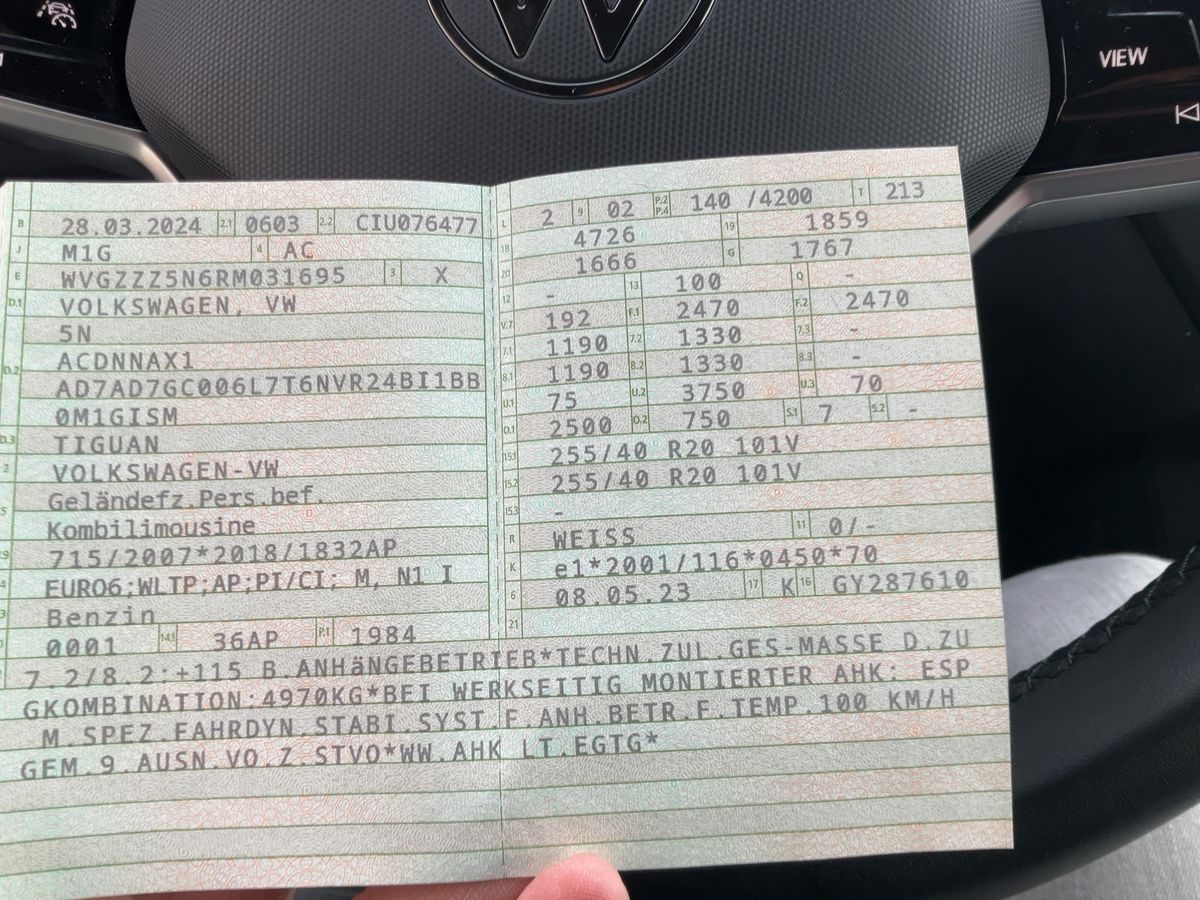 VIEW
B 28.03.2024 2.1 0603 2.2 CIU076477
J M1G 4 AC
E WVGZZZ5N6RM031695 3 X
D.1 VOLKSWAGEN, VW
5N
D.2 ACDNNAX1
AD7AD7GC006L7T6NVR24BI1BB
0M1GISM
D.3 TIGUAN
2 VOLKSWAGEN-VW
5 Geländefz.Pers.bef.
Kombilimousine
V.9 715/2007*2018/1832AP
14 EURO6;WLTP;AP;PI/CI; M, N1 I
P.3 Benzin
10 0001 14.1 36AP P.1 1984
L 2 9 02 P.2 P.4 140 /4200 T 213
18 4726 19 1859
20 1666 G 1767
12 - 13 100 Q -
V.7 192 F.1 2470 F.2 2470
7.1 1190 7.2 1330 7.3 -
8.1 1190 8.2 1330 8.3 -
U.1 75 U.2 3750 U.3 70
O.1 2500 O.2 750 S.1 7 S.2 -
15.1 255/40 R20 101V
15.2 255/40 R20 101V
15.3 -
R WEISS 11 0/-
K e1*2001/116*0450*70
6 08.05.23 17 K 16 GY287610
21
7.2/8.2:+115 B.ANHäNGEBETRIEB*TECHN.ZUL.GES-MASSE D.ZU
GKOMBINATION:4970KG*BEI WERKSEITIG MONTIERTER AHK: ESP
M.SPEZ.FAHRDYN.STABI.SYST.F.ANH.BETR.F.TEMP.100 KM/H
GEM.9.AUSN.VO.Z.STVO*WW.AHK LT.EGTG*